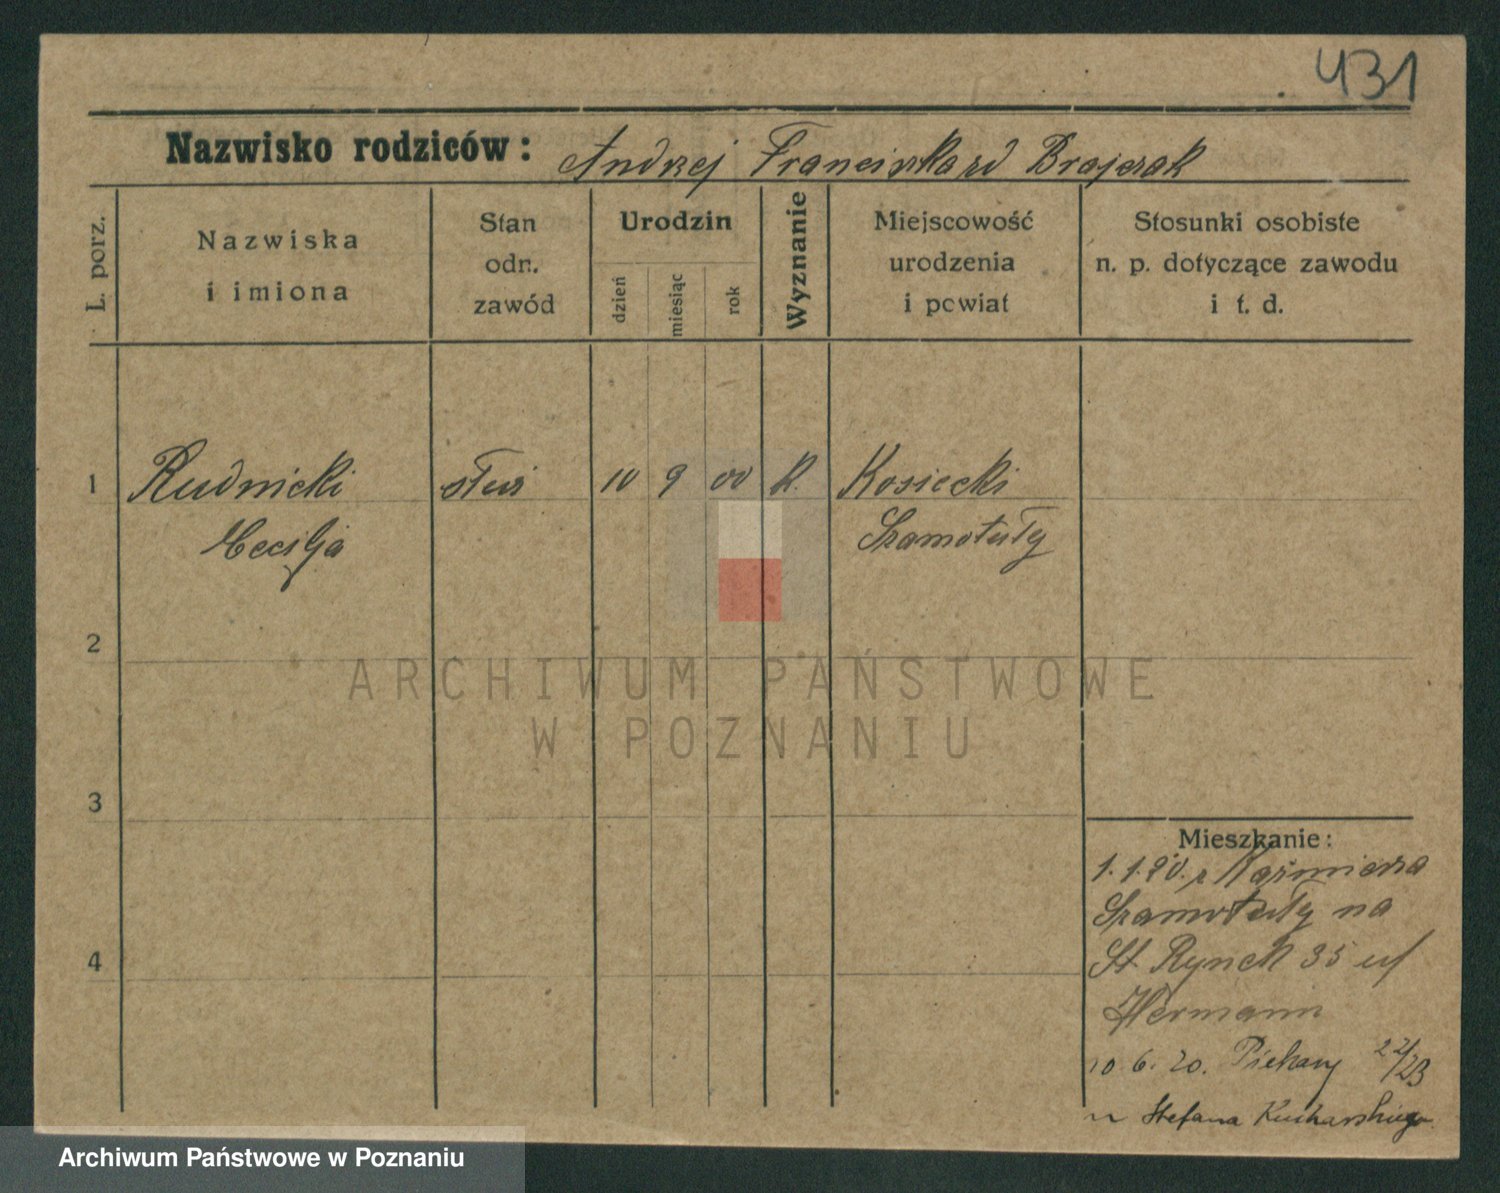 431
Nazwisko rodziców: Andrzej Franciszka zd Brajczak
L. porz.
Nazwiska i imiona
Stan odn. zawód
Urodzin
dzień
miesiąc
rok
Wyznanie
Miejscowość urodzenia i powiat
Stosunki osobiste n. p. dotyczące zawodu i t. d.
1 Rudnicki służ 10 9 00 k. Kosiecki
Cecilja Szamotuły
2
ARCHIWUM PAŃSTWOWE
W POZNANIU
3
Mieszkanie:
1.1.20. z Kaźmierza
Szamotuły na
4
St. Rynek 35 u/
Hermann
10 6. 20. Piekary 22/23
u Stefana Kucharskiego
Archiwum Państwowe w Poznaniu